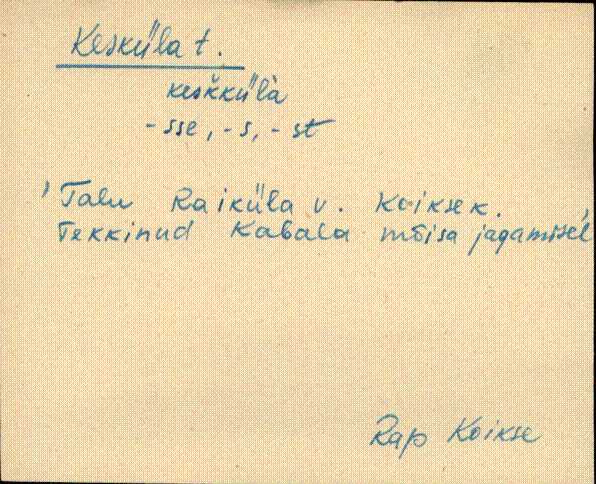 Kesküla t.
keskkülà
- sse, - s, - st
'Talu Raiküla v. Koikse k.
Tekkinud Kabala mõisa jagamisel'
Rap Koikse